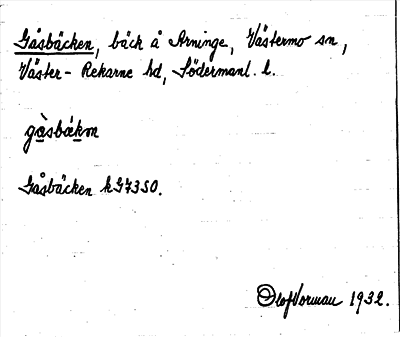 Gåsbäcken, bäck å Arninge, Västermo sn,
Väster-Rekarne hd, Södermanl. l.
gåsbäkən
Gåsbäcken k G 4350.
Olof Vorman 1932.